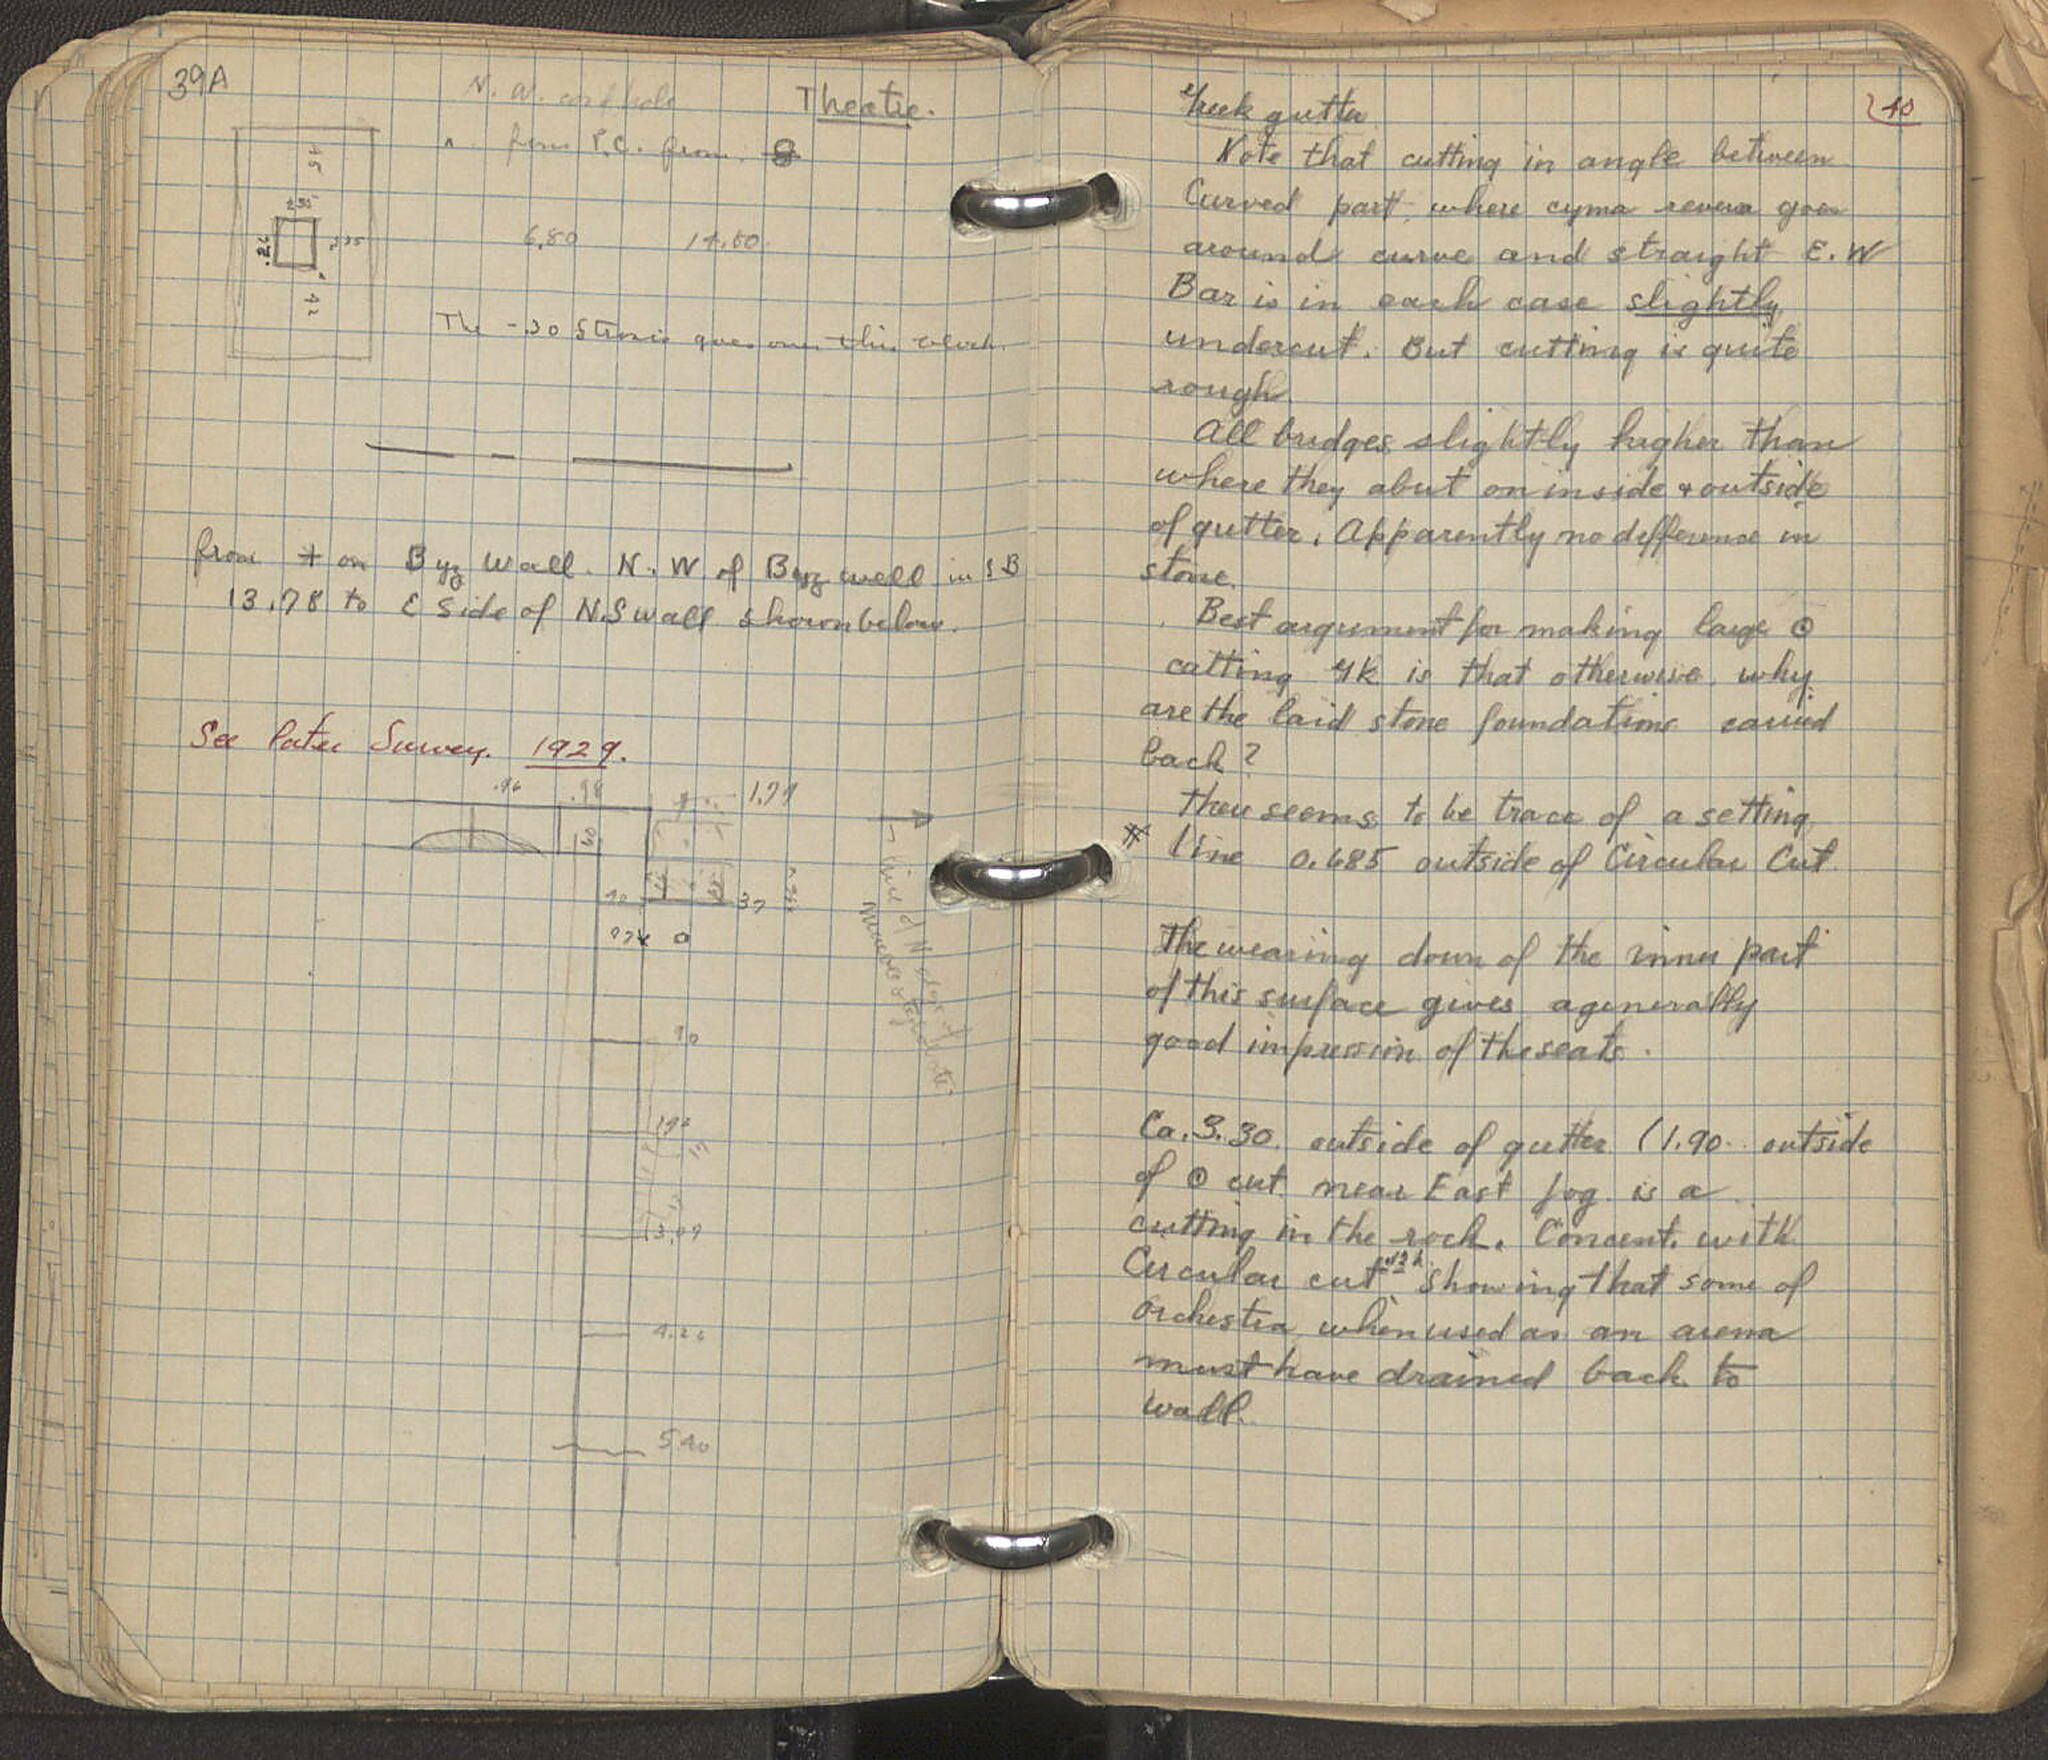 39A
Theatre.
N. W.
from P.C. from 8
.45
.235
.27
.335
.42
6.80 14.60
The -.30 goes over this
from + on Byz Wall. N.W. of Byz well in S B
13.78 to E Side of N.S wall shown below.
See later Survey. 1929.
.96 .98 1.79
37
0
90
192
3.07
4.22
5.40
line of N edge of
40
Greek gutter
Note that cutting in angle between
Curved part, where cyma reversa goes
around curve and straight E. W
Bar is in each case slightly
undercut. But cutting is quite
rough.
All bridges slightly higher than
where they abut on inside & outside
of gutter. Apparently no difference in
stone.
Best argument for making large ⊙
cutting Gk is that otherwise why
are the laid stone foundations carried
back?
There seems to be trace of a setting
# line 0.685 outside of Circular Cut.
The wearing down of the inner part
of this surface gives a generally
good impression of the seats.
Ca. 3.30 outside of gutter (1.90 outside
of ⊙ cut near East jog is a
cutting in the rock. Concent. with
Circular cut showing that some of
orchestra when used as an arena
must have drained back to
wall.